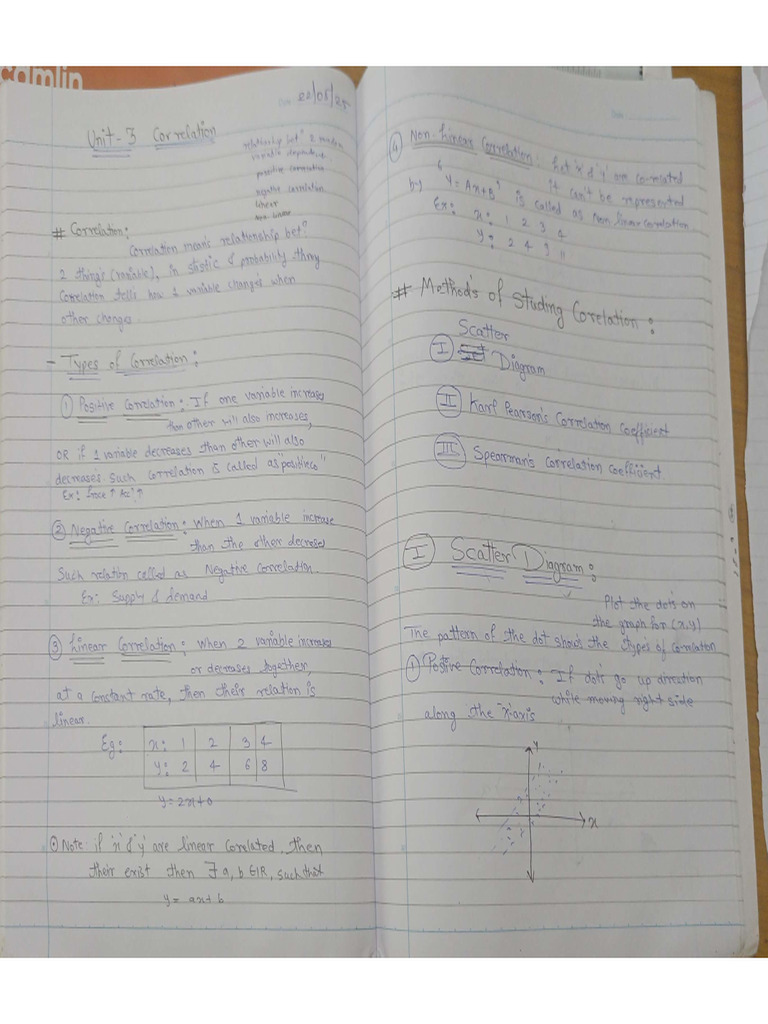 camlin
22/05/25
Unit-3 Correlation
relationship betⁿ 2 random
variable dependent
positive correlation
negative correlation
linear
non linear
# Correlation:
Correlation means relationship betⁿ
2 things (variable), in stistic & probability thory
Correlation tells how 1 variable changes when
other changes
- Types of Correlation:
① Positive Correlation: If one variable increases
than other will also increases,
OR if 1 variable decreases than other will also
decreases such correlation is called as "positive"
Ex: force ↑ Acc ↑
② Negative Correlation: When 1 variable increase
than the other decreses
Such relation called as Negative Correlation.
Ex: Supply & demand
③ Linear Correlation: when 2 variable increases
or decreases together,
at a constant rate, then their relation is
linear.
Eg: x: 1 2 3 4
y: 2 4 6 8
y = 2x+0
⊙ Note: if 'x' & 'y' are linear Corelated. then
their exist then ∃ a, b ∈ IR, such that
y = ax+b
④ Non-Linear Correlation: Let 'x' & 'y' are co-related
by "y = Ax+B" It can't be represented
is called as Non linear correlation
Ex: x: 1 2 3 4
y: 2 4 9 11
# Method's of Studing Corelation:
Scatter
Ⓘ Diagram
II Karl Pearson's Correlation Coefficient
III Spearman's Correlation Coefficient
Ⓘ Scatter Diagram:
Plot the dots on
the graph for (x,y)
The pattern of the dot shows the types of corelation
① Postive Correlation: If dots go up direction
while moving right side
along the 'x' axis
y
x